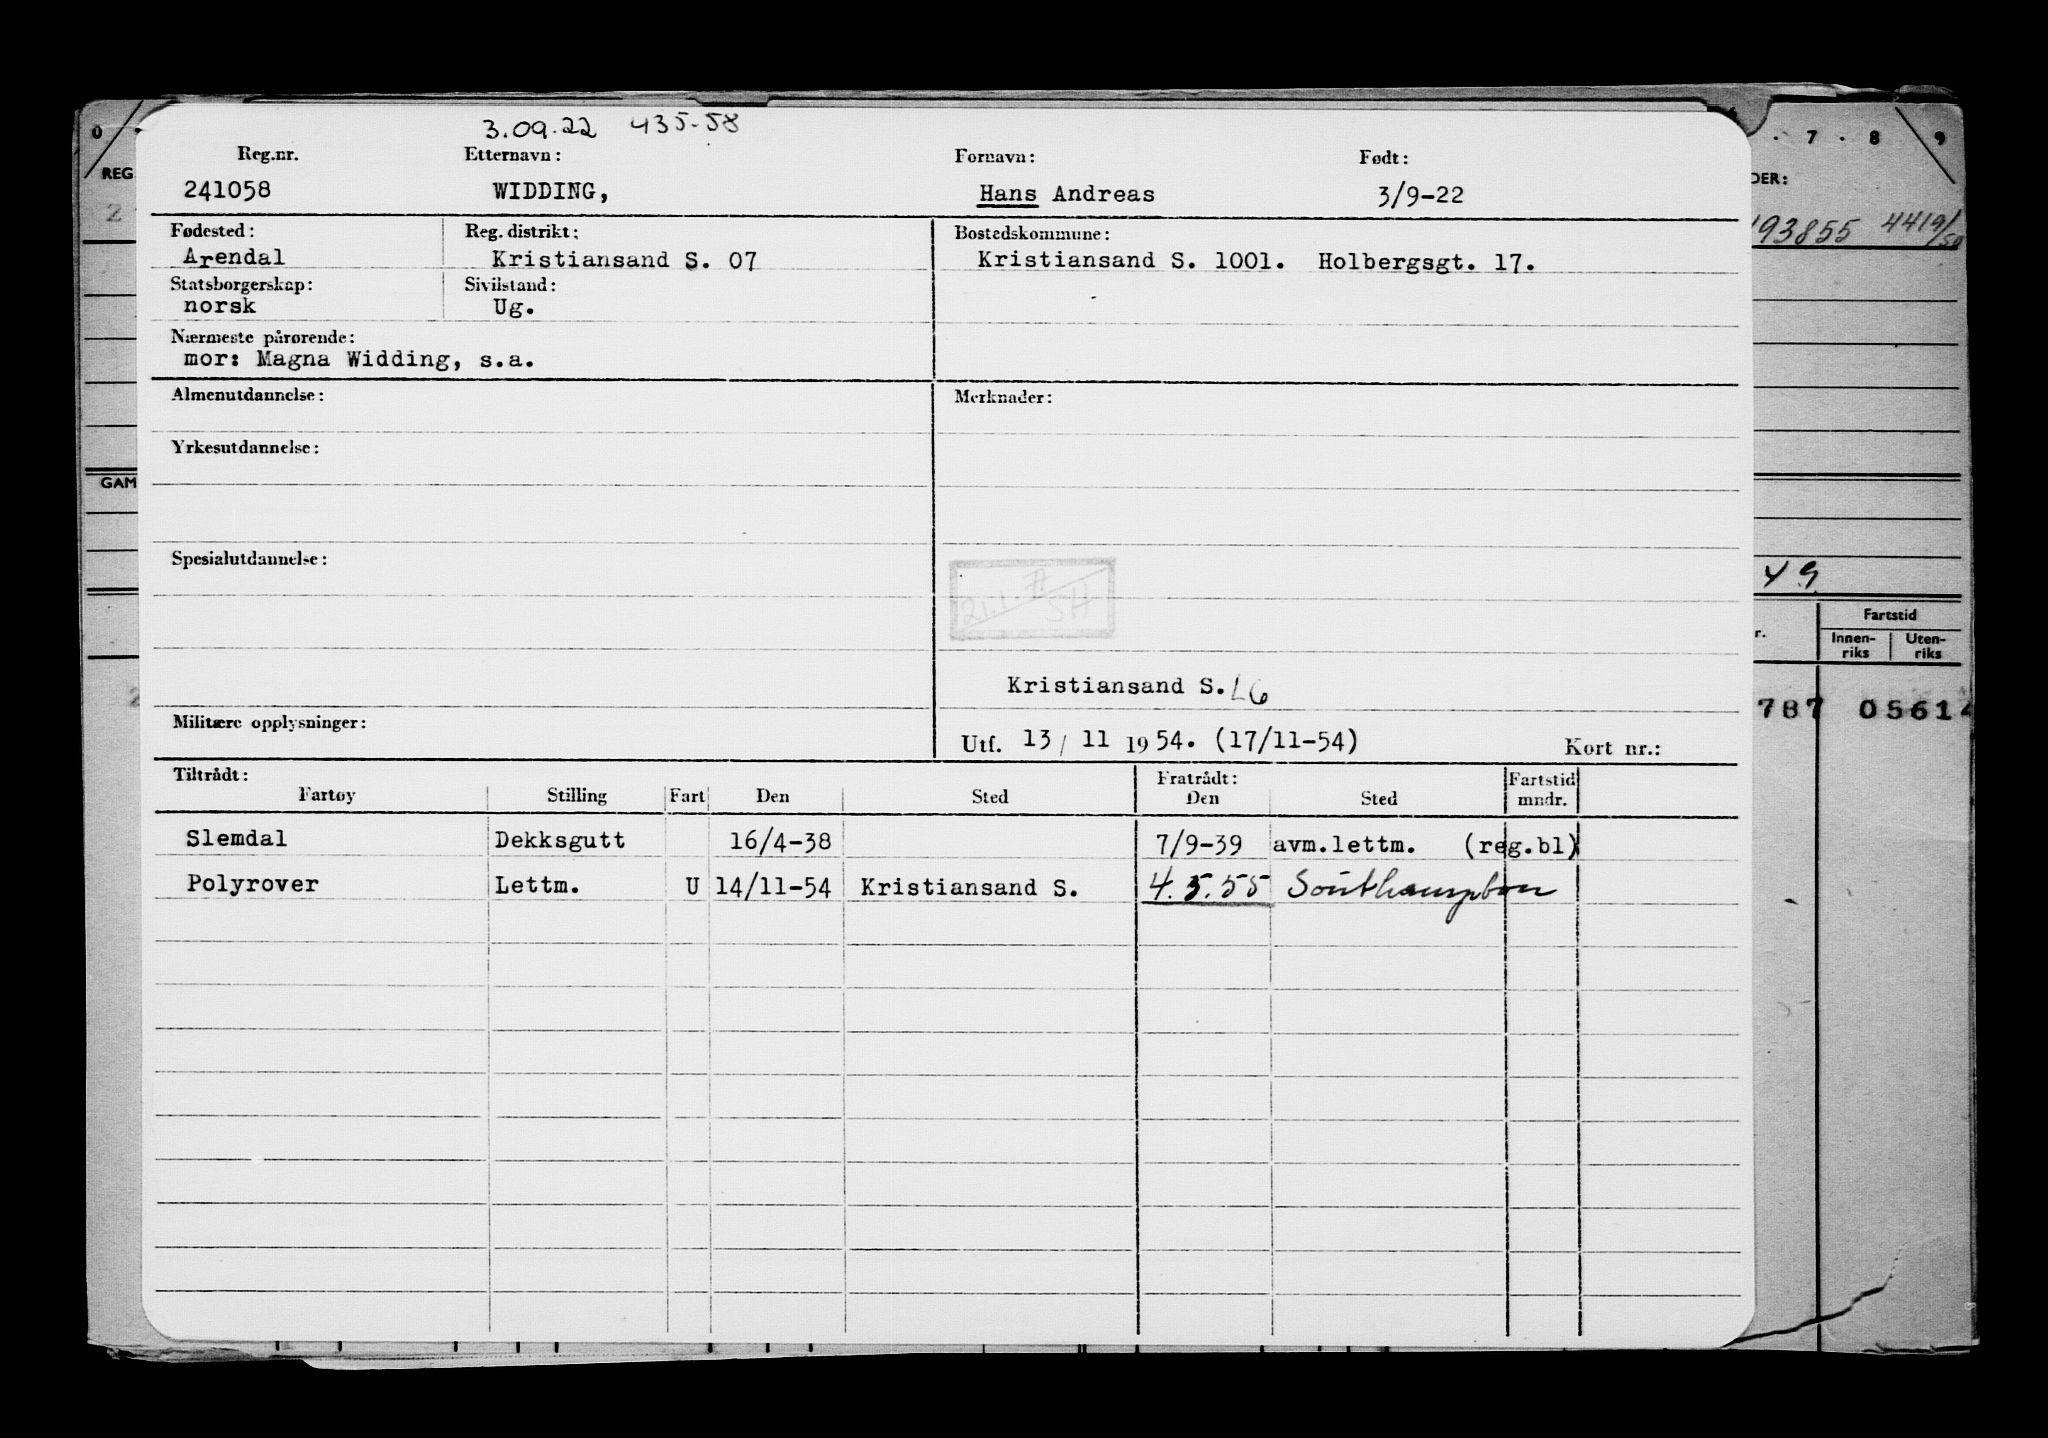 3.09.22 435.58
Reg.nr. Etternavn: Fornavn: Født:
241058 WIDDING, Hans Andreas 3/9-22
Fødested: Reg. distrikt: Bostedskommune:
Arendal Kristiansand S. 07 Kristiansand S. 1001. Holbergsgt. 17.
Statsborgerskap: Sivilstand:
norsk Ug.
Nærmeste pårørende:
mor: Magna Widding, s.a.
Almenutdannelse: Merknader:
Yrkesutdannelse:
Spesialutdannelse:
Kristiansand S. LG
Militære opplysninger:
Utf. 13/ 11 1954. (17/11-54) Kort nr.:
Tiltrådt: Fratrådt: Fartstid
Fartøy Stilling Fart Den Sted Den Sted mndr.
Slemdal Dekksgutt 16/4-38 7/9-39 avm.lettm. (reg.bl)
Polyrover Lettm. U 14/11-54 Kristiansand S. 4.5.55 Southampton
0
REG
2
GAM
7 . 8 9
DER:
93855 4419/50
49
Fartstid
r. Innen-riks Uten-riks
787 0561